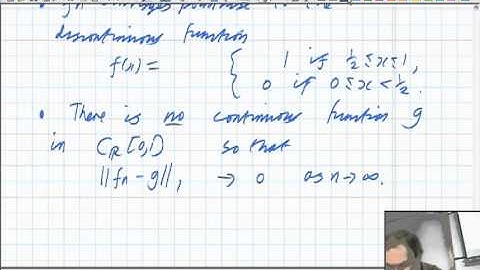 • fn converges pointwise to the
discontinuous function
f(x) = { 1 if ½ ≤ x ≤ 1,
0 if 0 ≤ x < ½.
• There is no continuous function g
in C_R[0,1] so that
||fn - g||₁ → 0 as n → ∞.